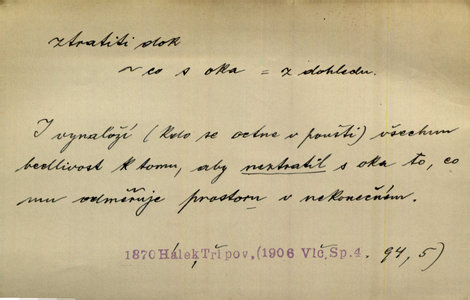 ztratiti dok
~ co s oka = z dohledu.
I vynaloží (kdo se octne v poušti) všechnu
bedlivost k tomu, aby neztratil s oka to, co
mu odměřuje prostoru v nekonečném.
1870 Hálek, Tři pov., (1906 Vlč, Sp. 4. 94, 5)